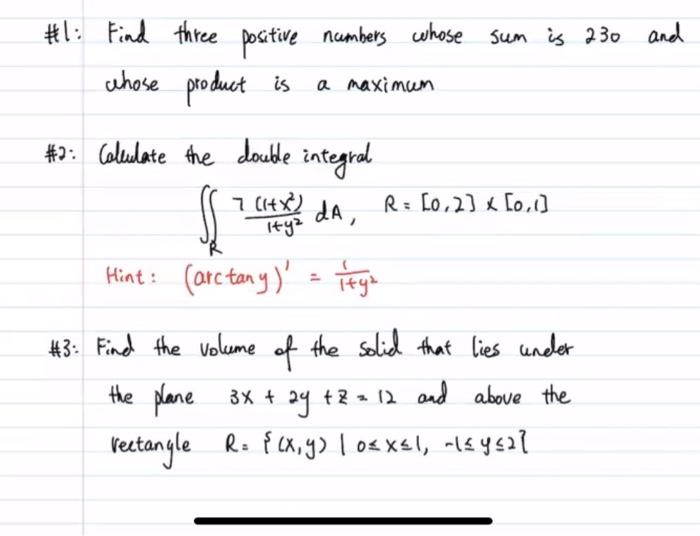 #1: Find three positive numbers whose sum is 230 and
whose product is a maximum
#2: Calculate the double integral
∬_R 7(1+x²)/(1+y²) dA, R = [0,2] x [0,1]
Hint: (arctan y)' = 1/(1+y²)
#3: Find the volume of the solid that lies under
the plane 3x + 2y + z = 12 and above the
rectangle R = {(x,y) | 0≤x≤1, -1≤y≤2}